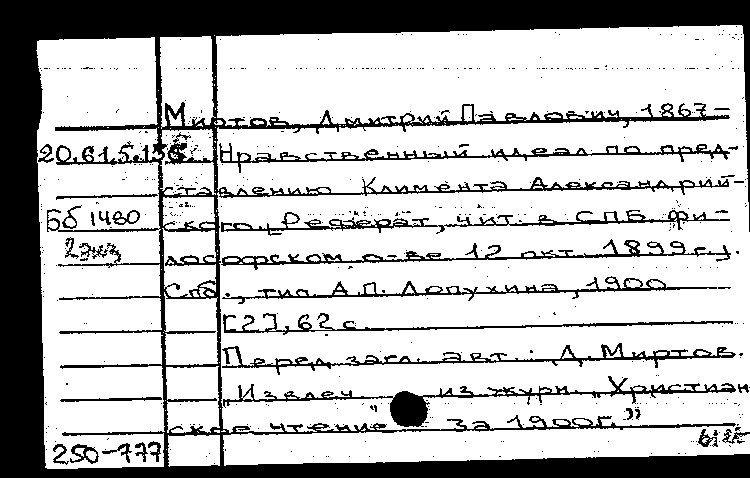 Миртов, Дмитрий Павлович, 1867-
20.61.5.136. Нравственный идеал по пред-
ставлению Климента Александрий-
Бб 1480 ского. [Реферат, чит. в СПБ. фи-
2 экз лософском о-ве 12 окт. 1899 г.].
Спб., тип. А.П. Лопухина, 1900
[2], 62 с.
Перед загл. авт.: Д. Миртов.
"Извлеч. из журн. "Христиан
ское чтение" за 1900г."
250-777